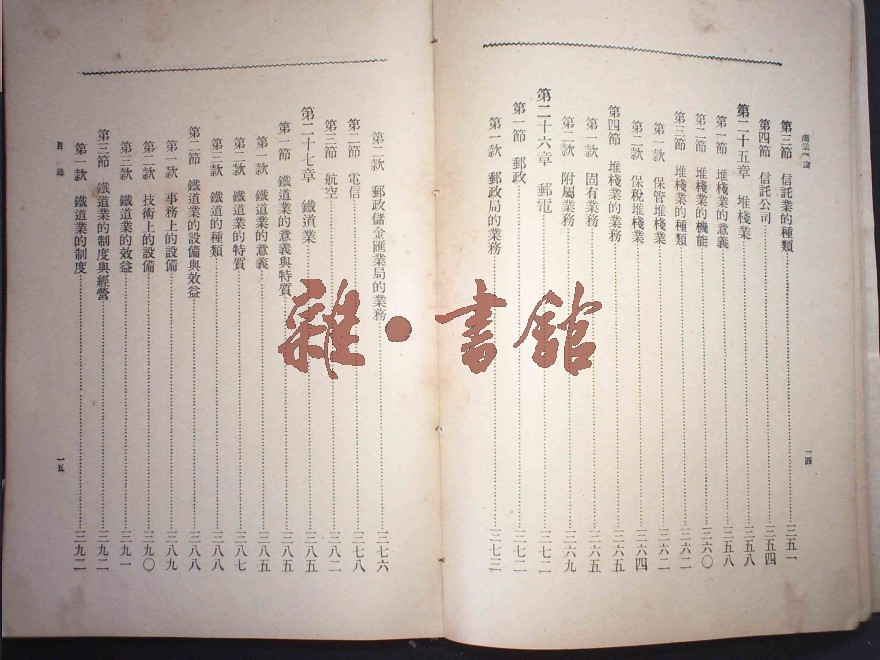 商業概論
第三節 信託業的種類…………三五一
第四節 信託公司…………三五四
第二十五章 堆棧業…………三五八
第一節 堆棧業的意義…………三五八
第二節 堆棧業的機能…………三六〇
第三節 堆棧業的種類…………三六二
第一款 保管堆棧業…………三六二
第二款 保稅堆棧業…………三六四
第四節 堆棧業的業務…………三六五
第一款 固有業務…………三六五
第二款 附屬業務…………三六九
第二十六章 郵電…………三七二
第一節 郵政…………三七二
第一款 郵政局的業務…………三七三
一四
第二款 郵政儲金匯業局的業務…………三七六
第二節 電信…………三七八
第三節 航空…………三八二
第二十七章 鐵道業…………三八五
第一節 鐵道業的意義與特質…………三八五
第一款 鐵道業的意義…………三八五
第二款 鐵道業的特質…………三八七
第三款 鐵道的種類…………三八八
第二節 鐵道業的設備與效益…………三八八
第一款 事務上的設備…………三八九
第二款 技術上的設備…………三九〇
第三款 鐵道業的效益…………三九一
第三節 鐵道業的制度與經營…………三九二
第一款 鐵道業的制度…………三九二
目錄
一五
雜•書館